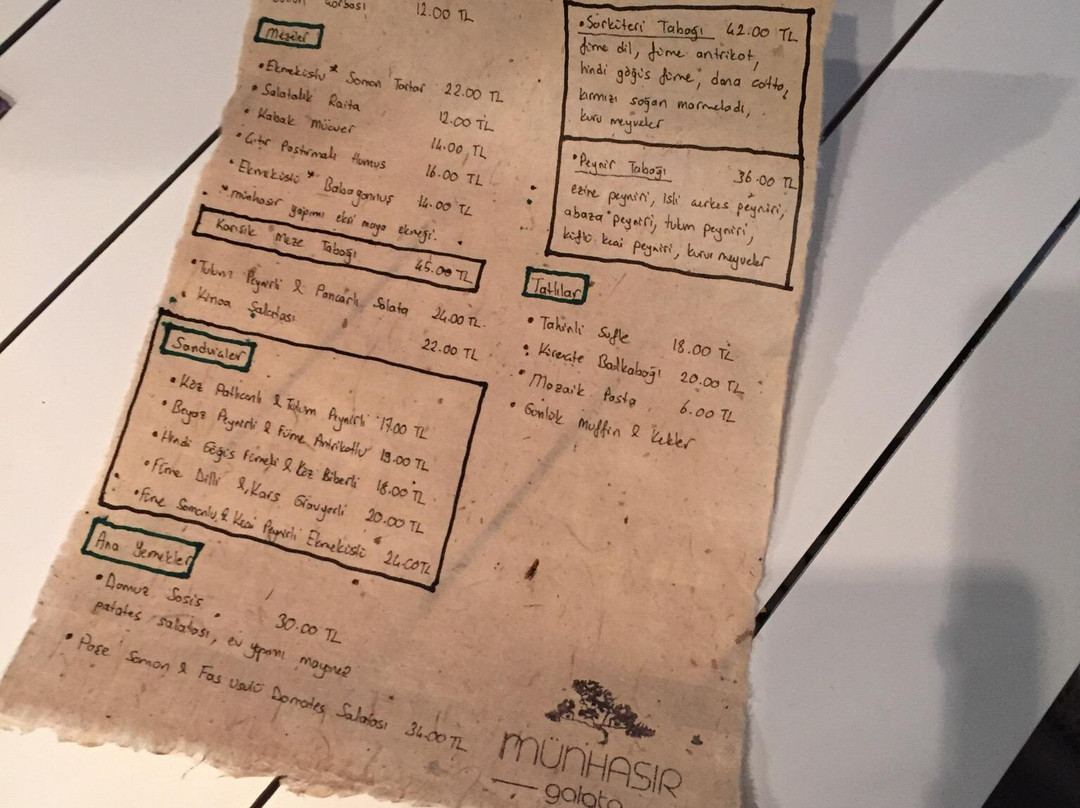 Çorbası 12.00 TL
Mezeler
• Ekmeküstü * Somon Tartar 22.00 TL
• Salatalık Raita 12.00 TL
• Kabak Mücver 14.00 TL
• Çıtır Pastırmalı Humus 16.00 TL
• Ekmeküstü * Babagannuş 14.00 TL
* münhasır yapımı ekşi maya ekmeği.
Karışık Meze Tabağı 45.00 TL
• Tulum Peynirli & Pancarlı Salata 24.00 TL.
• Kinoa Salatası 22.00 TL
Sandviçler
• Köz Patlıcanlı & Tulum Peynirli 17.00 TL
• Beyaz Peynirli & Füme Antrikotlu 19.00 TL
• Hindi Göğüs Fümeli & Köz Biberli 18.00 TL
• Füme Dilli & Kars Gravyerli 20.00 TL
• Füme Somonlu & Keçi Peynirli Ekmeküstü 24.00 TL
Ana Yemekler
• Domuz Sosis 30.00 TL
patates salatası, ev yapımı mayonez
• Poşe Somon & Fas Usulü Domates Salatası 34.00 TL
• Şarküteri Tabağı 42.00 TL
füme dil, füme antrikot,
hindi göğüs füme, dana cotto,
kırmızı soğan marmeladı,
kuru meyveler
• Peynir Tabağı 36.00 TL
ezine peyniri, isli çerkes peyniri,
abaza peyniri, tulum peyniri,
küflü keçi peyniri, kuru meyveler
Tatlılar
• Tahinli Sufle 18.00 TL
• Kireçte Balkabağı 20.00 TL
• Mozaik Pasta 6.00 TL
• Günlük Muffin & Kekler
MÜNHASIR
galata